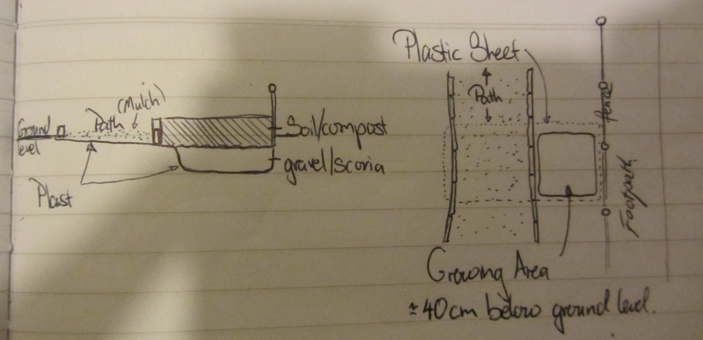 Ground
level
Path
(Mulch)
Soil/compost
gravel/scoria
Plast
Plastic Sheet
Path
fence
Footpath
Growing Area
≈40cm below ground level.